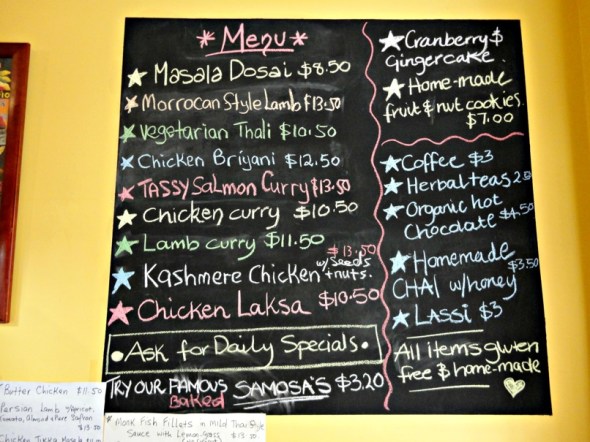 * Menu *
Masala Dosai $8.50
Morrocan Style Lamb $13.50
Vegetarian Thali $10.50
Chicken Briyani $12.50
TASSY SaLmon Curry $13.50
Chicken curry $10.50
Lamb curry $11.50
$13.50
Kashmere Chicken w/ seeds + nuts.
Chicken Laksa $10.50
• Ask for Daily Specials •
TRY OUR FAMOUS Baked SAMOSA'S $3.20
Cranberry &
Gingercake.
Home-made
fruit & nut cookies.
$7.00
Coffee $3
Herbal teas
Organic hot
Chocolate $4.50
Homemade
$3.50
CHAI w/honey
LASSI $3
All items gluten
free & home-made
Butter Chicken $11.50
Persian Lamb
$13.50
Chicken Tikka Masala
* Monk Fish Fillets in Mild Thai Style
Sauce with Lemon-grass
$13.50